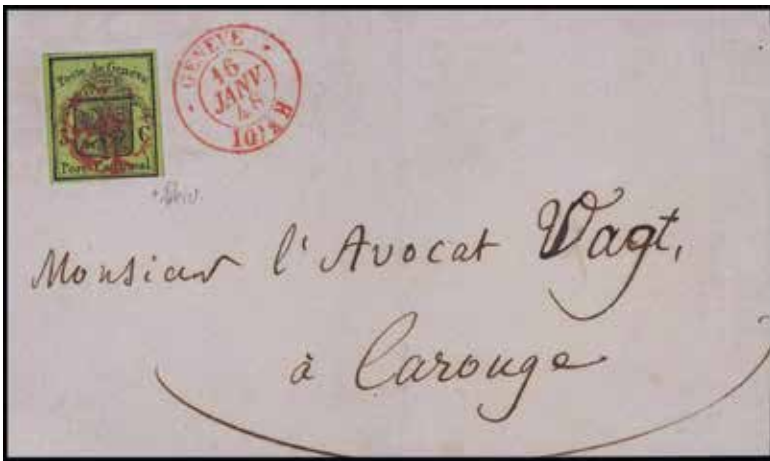 Poste de Genève
5 C
Port Cantonal
GENEVE
16
JANV.
48
10½ M
Monsieur l'Avocat Vagt,
à Carouge